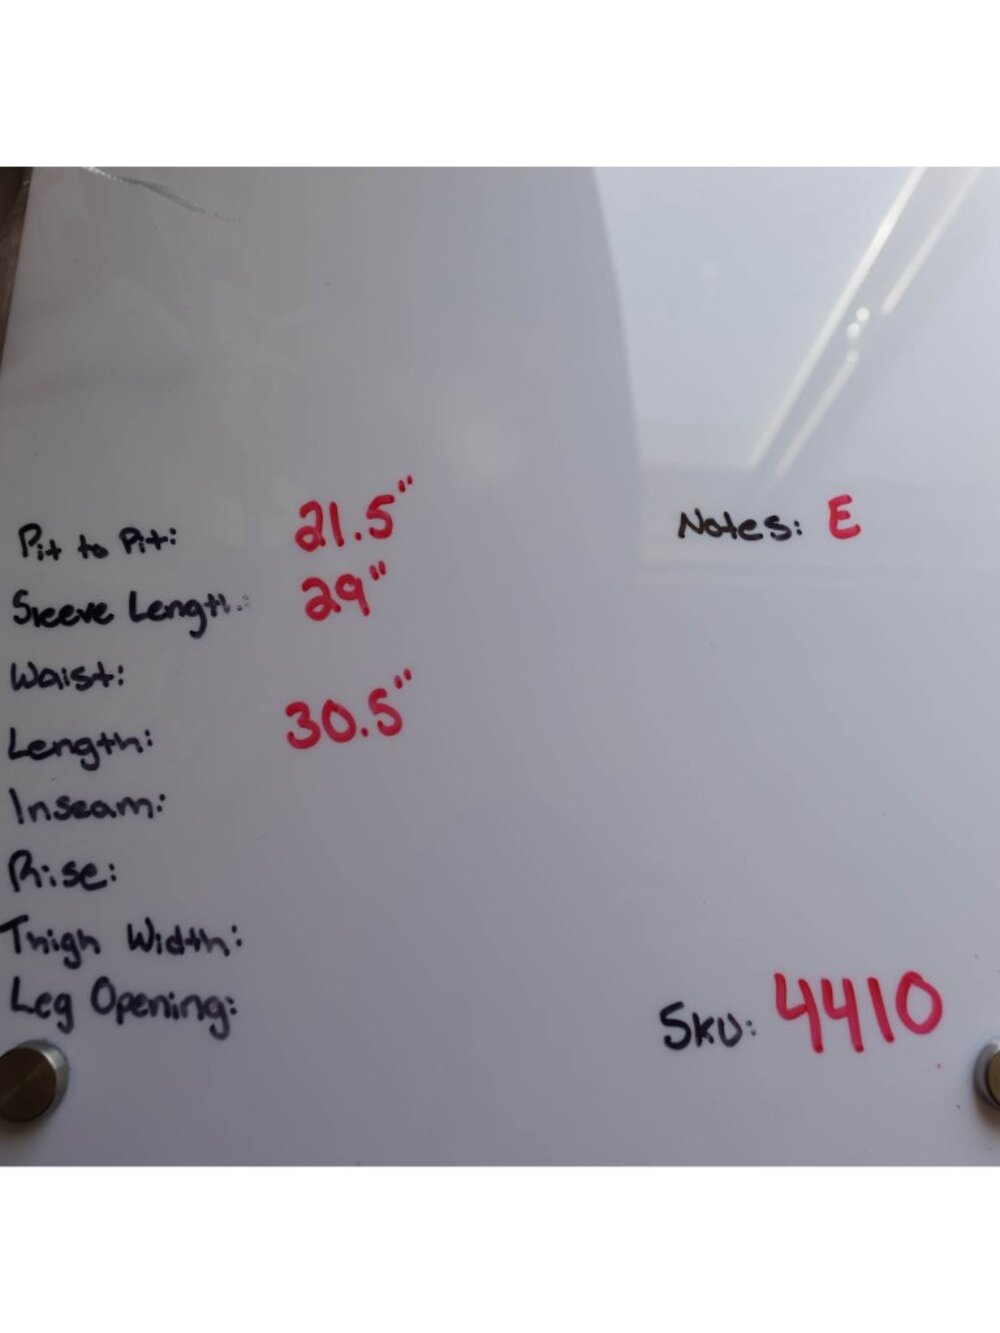 Pit to Pit: 21.5"
Sleeve Length: 29"
Waist:
Length: 30.5"
Inseam:
Rise:
Thigh Width:
Leg Opening:
Notes: E
SKU: 4410